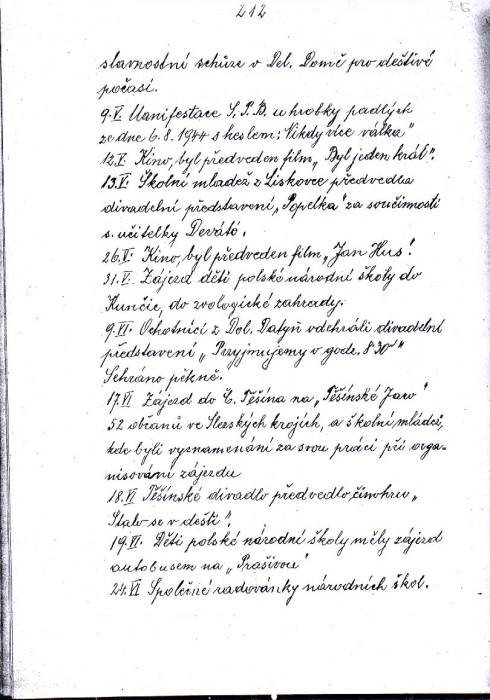 212
slavnostní schůze v Děl. Domě pro deštivé
počasí.
9.V. Manifestace S.P.B. u hrobky padlých
ze dne 6.8.1944 s heslem: "Nikdy více válka"
12.V. Kino, byl předveden film „Byl jeden král".
13.V. Školní mladež z Liskovce předvedla
divadelní představení „Popelka" za součinnosti
s. učitelky Deváté.
26.V. Kino, byl předveden film „Jan Hus".
31.V. Zájezd dětí polské národní školy do
Kunčic, do zoologické zahrady.
9.VI. Ochotníci z Dol. Datyň odehráli divadelní
představení „Przyjmujemy v godz. 8³⁰"
Sehráno pěkně.
17.VI Zájezd do Č. Těšína na „Těšínské Jaro"
52 občanů ve Slezských krojích, a školní mládež,
kde byli vyznamenání za svou práci při orga-
nisování zájezdu
18.VI Těšínské divadlo předvedlo, činohru „
Stalo se v dešti".
19.VI. Děti polské národní školy měly zájezd
autobusem na „Prašivou"
24.VI Společné radovánky národních škol.